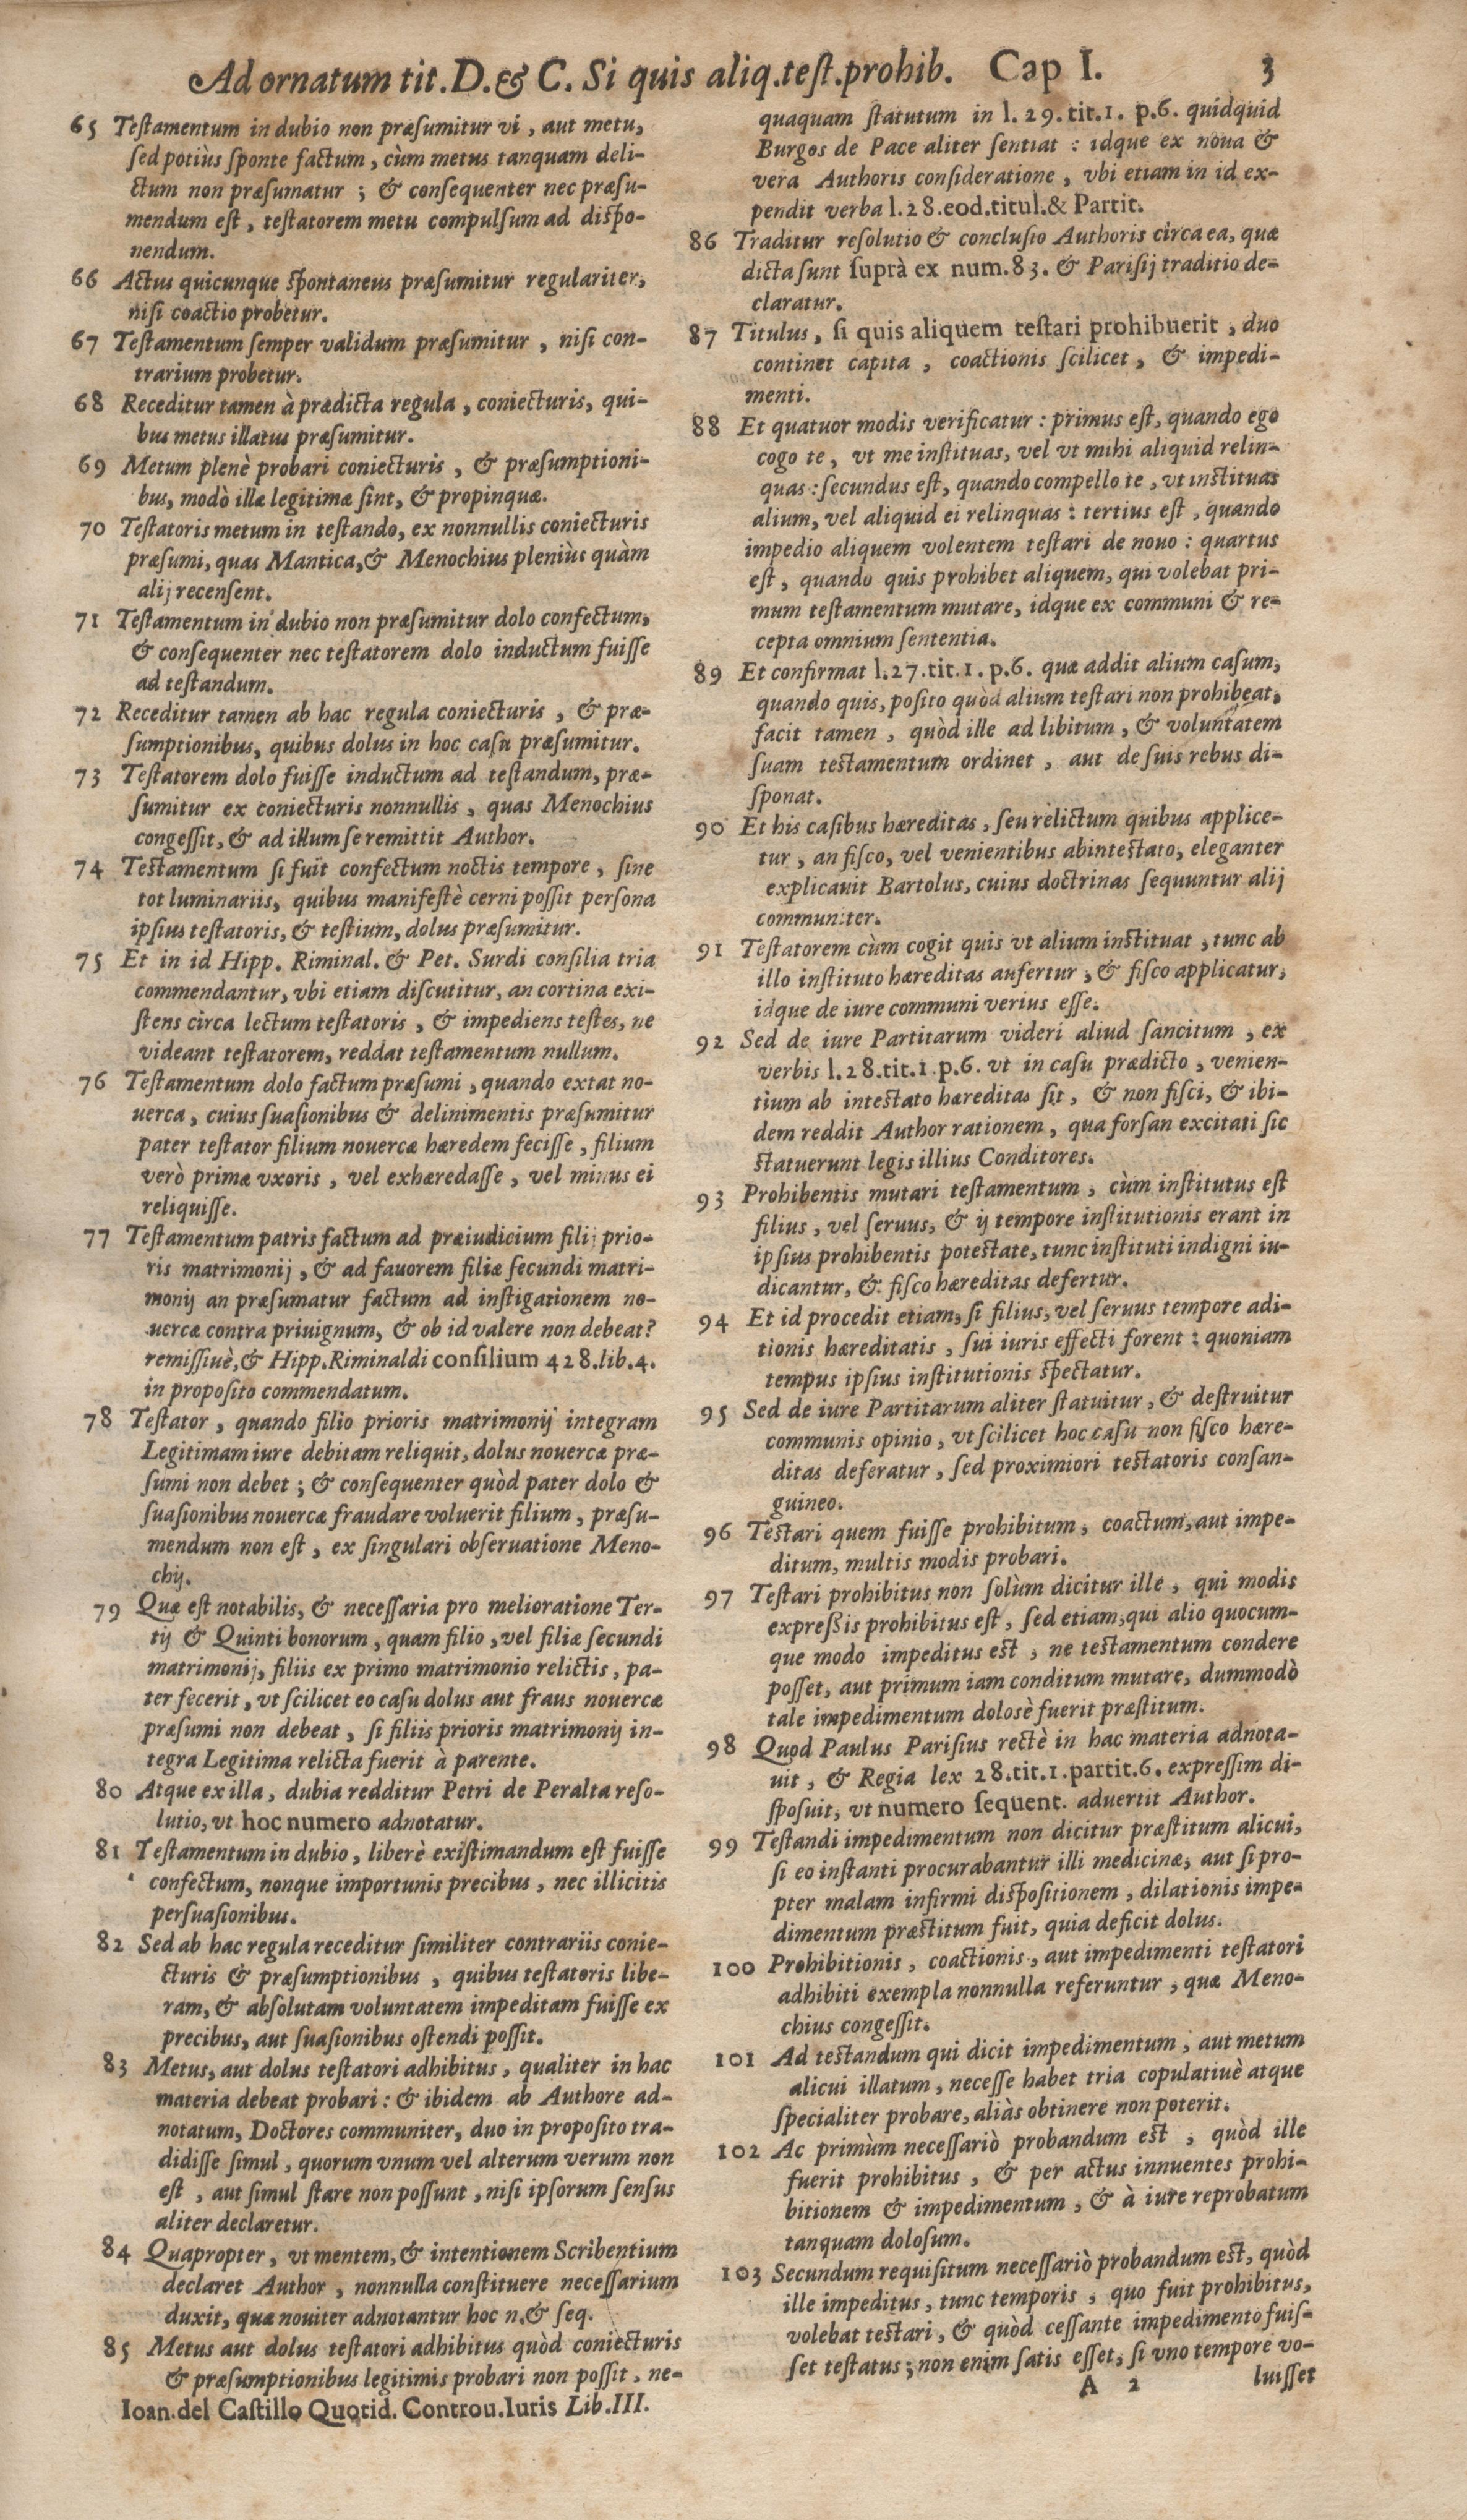 Ad ornatum tit.D.& C. Si quis aliq.teſt.prohib. Cap I. 3
65 Teſtamentum in dubio non præſumitur vi, aut metu,
ſed potiùs ſponte factum, cùm metus tanquam deli-
ctum non præſumatur ; & conſequenter nec præſu-
mendum eſt, teſtatorem metu compulſum ad diſpo-
nendum.
66 Actus quicunque ſpontaneus præſumitur regulariter,
niſi coactio probetur.
67 Teſtamentum ſemper validum præſumitur , niſi con-
trarium probetur.
68 Receditur tamen à prædicta regula, coniecturis, qui-
bus metus illatus præſumitur.
69 Metum plenè probari coniecturis , & præſumptioni-
bus, modò illæ legitimæ ſint, & propinquæ.
70 Teſtatoris metum in teſtando, ex nonnullis coniecturis
præſumi, quas Mantica,& Menochius pleniùs quàm
alij recenſent.
71 Teſtamentum in dubio non præſumitur dolo confectum,
& conſequenter nec teſtatorem dolo inductum fuiſſe
ad teſtandum.
72 Receditur tamen ab hac regula coniecturis , & præ-
ſumptionibus, quibus dolus in hoc caſu præſumitur.
73 Teſtatorem dolo fuiſſe inductum ad teſtandum, præ-
ſumitur ex coniecturis nonnullis , quas Menochius
congeſſit, & ad illum ſe remittit Author.
74 Teſtamentum ſi fuit confectum noctis tempore, ſine
tot luminariis, quibus manifeſtè cerni poſſit perſona
ipſius teſtatoris, & teſtium, dolus præſumitur.
75 Et in id Hipp. Riminal. & Pet. Surdi conſilia tria
commendantur, vbi etiam diſcutitur, an cortina exi-
ſtens circa lectum teſtatoris , & impediens teſtes, ne
videant teſtatorem, reddat teſtamentum nullum.
76 Teſtamentum dolo factum præſumi , quando extat no-
uerca, cuius ſuaſionibus & delinimentis præſumitur
pater teſtator filium nouercæ hæredem feciſſe, filium
verò primæ vxoris , vel exhæredaſſe, vel minus ei
reliquiſſe.
77 Teſtamentum patris factum ad præiudicium filij prio-
ris matrimonij , & ad fauorem filiæ ſecundi matri-
monij an præſumatur factum ad inſtigationem no-
uercæ contra priuignum, & ob id valere non debeat?
remiſſiuè,& Hipp.Riminaldi conſilium 428.lib.4.
in propoſito commendatum.
78 Teſtator , quando filio prioris matrimonij integram
Legitimam iure debitam reliquit, dolus nouercæ præ-
ſumi non debet ; & conſequenter quòd pater dolo &
ſuaſionibus nouercæ fraudare voluerit filium , præſu-
mendum non eſt , ex ſingulari obſeruatione Meno-
chij.
79 Quæ eſt notabilis, & neceſſaria pro melioratione Ter-
tij & Quinti bonorum, quam filio , vel filiæ ſecundi
matrimonij, filiis ex primo matrimonio relictis, pa-
ter fecerit, vt ſcilicet eo caſu dolus aut fraus nouercæ
præſumi non debeat , ſi filiis prioris matrimonij in-
tegra Legitima relicta fuerit à parente.
80 Atque ex illa, dubia redditur Petri de Peralta reſo-
lutio, vt hoc numero adnotatur.
81 Teſtamentum in dubio, liberè exiſtimandum eſt fuiſſe
confectum, nonque importunis precibus, nec illicitis
perſuaſionibus.
82 Sed ab hac regula receditur ſimiliter contrariis conie-
cturis & præſumptionibus , quibus teſtatoris libe-
ram, & abſolutam voluntatem impeditam fuiſſe ex
precibus, aut ſuaſionibus oſtendi poſſit.
83 Metus, aut dolus teſtatori adhibitus, qualiter in hac
materia debeat probari: & ibidem ab Authore ad-
notatum, Doctores communiter, duo in propoſito tra-
didiſſe ſimul, quorum vnum vel alterum verum non
eſt , aut ſimul ſtare non poſſunt, niſi ipſorum ſenſus
aliter declaretur.
84 Quapropter, vt mentem,& intentionem Scribentium
declaret Author , nonnulla conſtituere neceſſarium
duxit, quæ nouiter adnotantur hoc n.& ſeq.
85 Metus aut dolus teſtatori adhibitus quòd coniecturis
& præſumptionibus legitimis probari non poſſit, ne-
Ioan.del Caſtillo Quotid. Controu.Iuris Lib.III.
quaquam ſtatutum in l.29.tit.1. p.6. quidquid
Burgos de Pace aliter ſentiat : idque ex noua &
vera Authoris conſideratione , vbi etiam in id ex-
pendit verba l.28.eod.titul.& Partit.
86 Traditur reſolutio & concluſio Authoris circa ea, quæ
dicta ſunt ſuprà ex num.83. & Pariſij traditio de-
claratur.
87 Titulus, ſi quis aliquem teſtari prohibuerit, duo
continet capita , coactionis ſcilicet, & impedi-
menti.
88 Et quatuor modis verificatur : primus eſt, quando ego
cogo te, vt me inſtituas, vel vt mihi aliquid relin-
quas : ſecundus eſt, quando compello te , vt inſtituas
alium, vel aliquid ei relinquas : tertius eſt , quando
impedio aliquem volentem teſtari de nouo : quartus
eſt, quando quis prohibet aliquem, qui volebat pri-
mum teſtamentum mutare, idque ex communi & re-
cepta omnium ſententia.
89 Et confirmat l.27.tit.1. p.6. quæ addit alium caſum,
quando quis, poſito quòd alium teſtari non prohibeat,
facit tamen , quòd ille ad libitum , & voluntatem
ſuam teſtamentum ordinet , aut de ſuis rebus di-
ſponat.
90 Et his caſibus hæreditas, ſeu relictum quibus applice-
tur , an fiſco, vel venientibus abinteſtato, eleganter
explicauit Bartolus, cuius doctrinas ſequuntur alij
communiter.
91 Teſtatorem cùm cogit quis vt alium inſtituat , tunc ab
illo inſtituto hæreditas aufertur, & fiſco applicatur,
idque de iure communi verius eſſe.
92 Sed de iure Partitarum videri aliud ſancitum , ex
verbis l.28.tit.1 p.6. vt in caſu prædicto , venien-
tium ab inteſtato hæreditas ſit , & non fiſci, & ibi-
dem reddit Author rationem, qua forſan excitati ſic
ſtatuerunt legis illius Conditores.
93 Prohibentis mutari teſtamentum , cùm inſtitutus eſt
filius , vel ſeruus, & ij tempore inſtitutionis erant in
ipſius prohibentis poteſtate, tunc inſtituti indigni iu-
dicantur, & fiſco hæreditas defertur.
94 Et id procedit etiam, ſi filius, vel ſeruus tempore adi-
tionis hæreditatis , ſui iuris effecti forent : quoniam
tempus ipſius inſtitutionis ſpectatur.
95 Sed de iure Partitarum aliter ſtatuitur, & deſtruitur
communis opinio, vt ſcilicet hoc caſu non fiſco hære-
ditas deferatur , ſed proximiori teſtatoris conſan-
guineo.
96 Teſtari quem fuiſſe prohibitum, coactum, aut impe-
ditum, multis modis probari.
97 Teſtari prohibitus non ſolùm dicitur ille , qui modis
expreßis prohibitus eſt, ſed etiam, qui alio quocum-
que modo impeditus eſt , ne teſtamentum condere
poſſet, aut primum iam conditum mutare, dummodò
tale impedimentum dolosè fuerit præſtitum.
98 Quod Paulus Pariſius rectè in hac materia adnota-
uit , & Regia lex 28.tit.1.partit.6. expreſſim di-
ſpoſuit, vt numero ſequent. aduertit Author.
99 Teſtandi impedimentum non dicitur præſtitum alicui,
ſi eo inſtanti procurabantur illi medicinæ, aut ſi pro-
pter malam infirmi diſpoſitionem , dilationis impe-
dimentum præſtitum fuit, quia deficit dolus.
100 Prohibitionis , coactionis, aut impedimenti teſtatori
adhibiti exempla nonnulla referuntur, quæ Meno-
chius congeſſit.
101 Ad teſtandum qui dicit impedimentum , aut metum
alicui illatum, neceſſe habet tria copulatiuè atque
ſpecialiter probare, aliàs obtinere non poterit.
102 Ac primùm neceſſariò probandum eſt , quòd ille
fuerit prohibitus , & per actus innuentes prohi-
bitionem & impedimentum , & à iure reprobatum
tanquam doloſum.
103 Secundum requiſitum neceſſariò probandum eſt, quòd
ille impeditus, tunc temporis , quo fuit prohibitus,
volebat teſtari, & quòd ceſſante impedimento fuiſ-
ſet teſtatus ; non enim ſatis eſſet, ſi vno tempore vo-
A 2 luiſſet